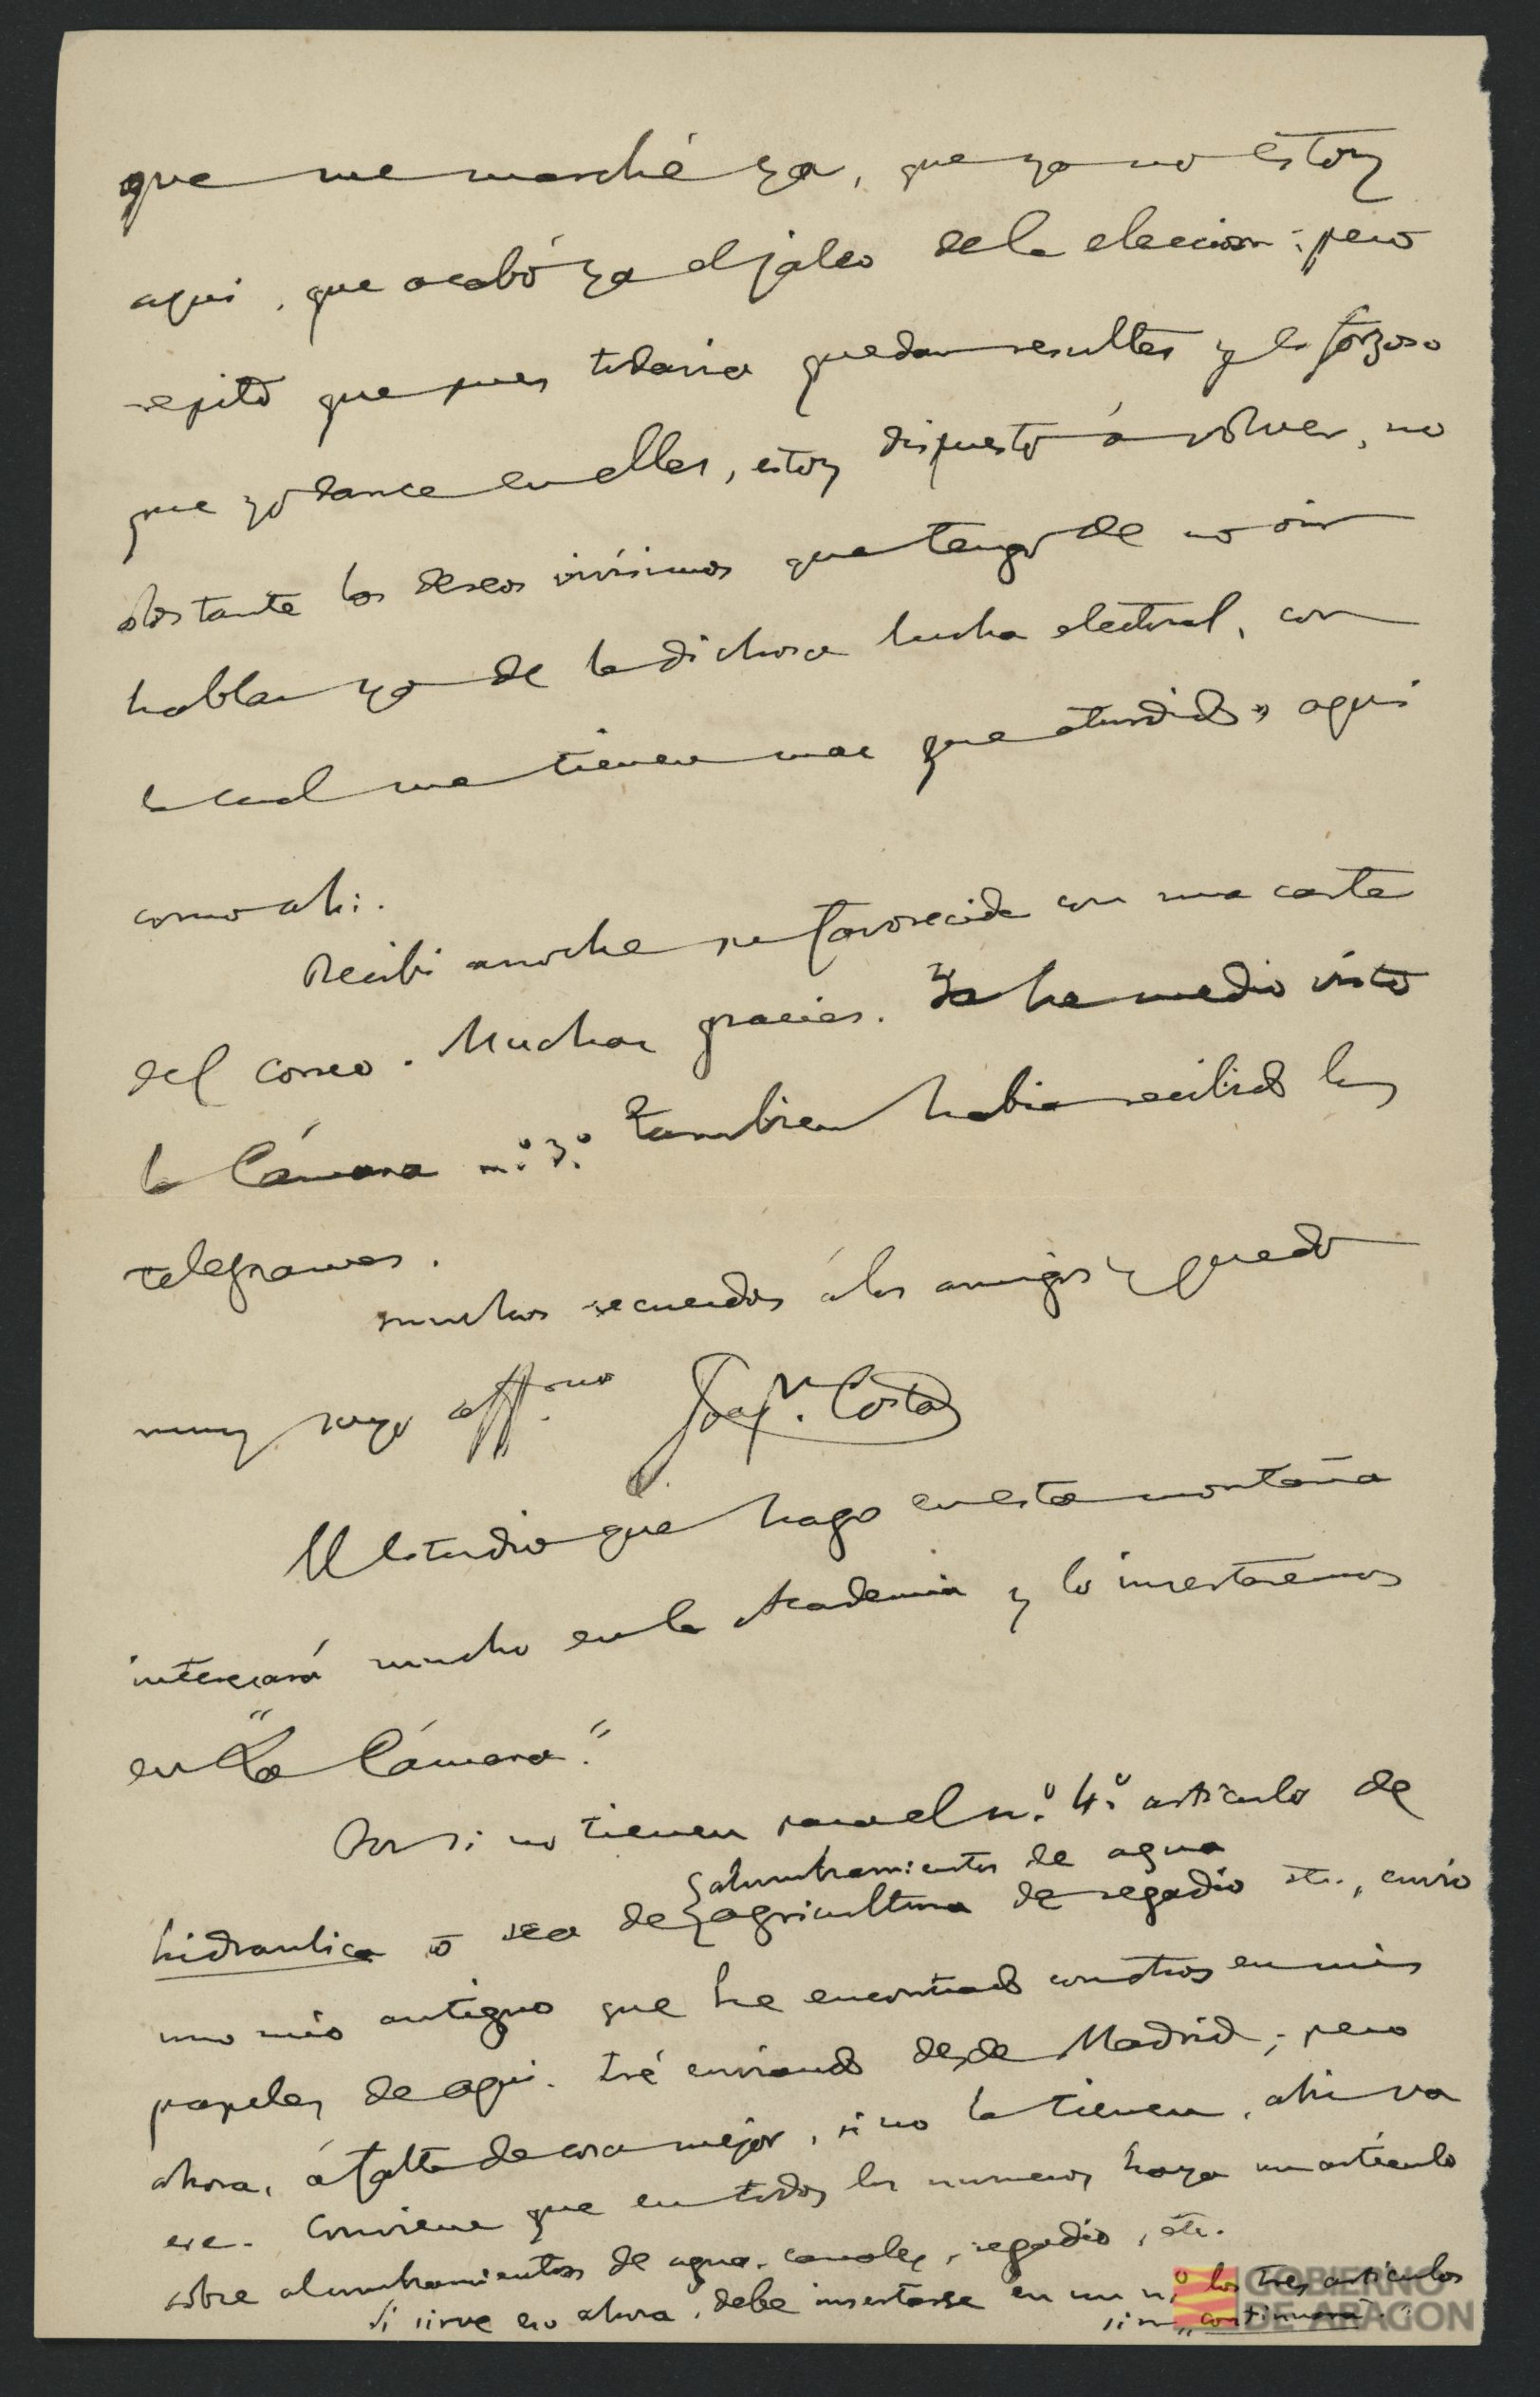 que me marché ya, que ya no estoy
aqui, que acabó ya el jaleo de la eleccion; pero
repito que pues todavia quedan resultas y es forzoso
que yo dance en ellas, estoy dispuesto á volver, no
obstante los deseos vivísimos que tengo de no oir
hablar ya de la dichosa lucha electoral, con
lo cual me tienen mas que aturdido aqui
como ahi.
Recibi anoche su favorecida con una carta
del correo. Muchas gracias. Ya he medio visto
la Cámara n.º 3.º Tambien habia recibido los
telegramas.
Muchos recuerdos á los amigos y quedo
muy suyo aff.mo Joaq.n Costa
El estudio que hago en esta montaña
interesará mucho en la Academia y lo insertaremos
en "La Cámara."
Por si no tienen para el n.º 4.º articulo de
alumbramientos de agua
hidraulica ó sea de agricultura de regadio etc., envio
uno mio antiguo que he encontrado con otros en mis
papeles de aqui. Iré enviando desde Madrid; pero
ahora, á falta de cosa mejor, si no la tienen, ahi va
ese. Conviene que en todos los numeros haya un artículo
sobre alumbramientos de agua, canales, regadio, etc.
Si sirve eso ahora, debe insertarse en un n.º los tres articulos
sin "continuará".
GOBIERNO
DE ARAGON